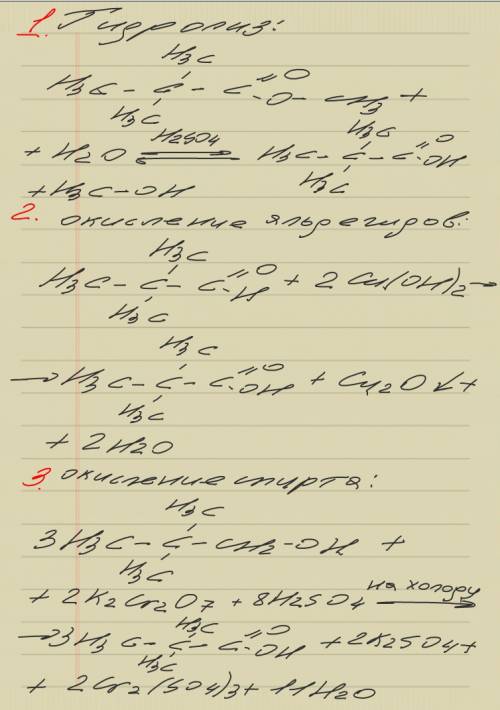 1. Гидролиз:
H3C
H3C - C - C =O
H3C -O - CH3 +
+ H2O H2SO4 ⇌ H3C - C - C =O -OH
H3C
H3C
+ H3C - OH
2. окисление альдегидов:
H3C
H3C - C - C =O -H + 2 Cu(OH)2 →
H3C
H3C
→ H3C - C - C =O -OH + Cu2O ↓ +
H3C
+ 2H2O
3. окисление спирта:
H3C
3H3C - C - CH2 - OH +
H3C
+ 2K2Cr2O7 + 8H2SO4 на холоду →
H3C
→ 3H3C - C - C =O -OH + 2K2SO4 +
H3C
+ 2Cr2(SO4)3 + 11H2O